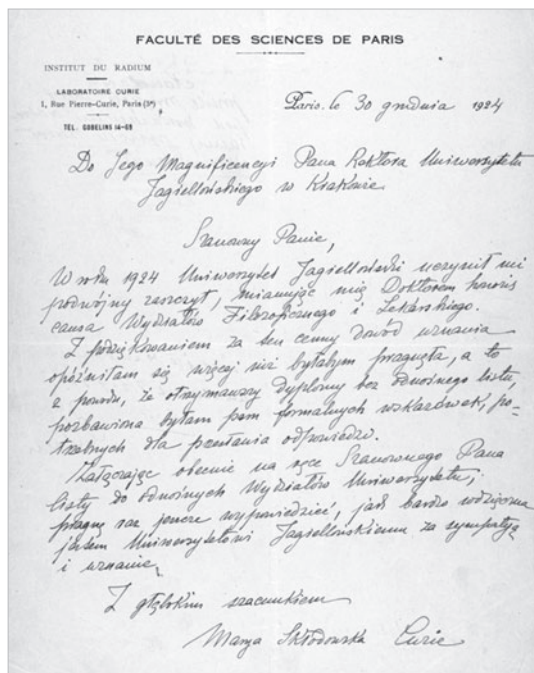 FACULTÉ DES SCIENCES DE PARIS
INSTITUT DU RADIUM
LABORATOIRE CURIE
1, Rue Pierre-Curie, Paris (5ᵉ)
TÉL. GOBELINS 14-69
Paris, le 30 grudnia 1924
Do Jego Magnificencyi Pana Rektora Uniwersytetu
Jagiellońskiego w Krakowie
Szanowny Panie,
W roku 1924 Uniwersytet Jagielloński uczynił mi
podwójny zaszczyt, mianując mię Doktorem honoris
causa Wydziałów Filozoficznego i Lekarskiego.
Z podziękowaniem za ten cenny dowód uznania
opóźniłam się więcej niż byłabym pragnęła, a to
z powodu, że otrzymawszy dyplomy bez odnośnego listu,
pozbawiona byłam formalnych wskazówek, po-
trzebnych dla przesłania odpowiedzi.
Załączając obecnie na ręce Szanownego Pana
listy do odnośnych Wydziałów Uniwersytetu,
pragnę raz jeszcze wypowiedzieć, jak bardzo wdzięczna
jestem Uniwersytetowi Jagiellońskiemu za sympatyę
i uznanie.
Z głębokim szacunkiem
Marya Skłodowska Curie